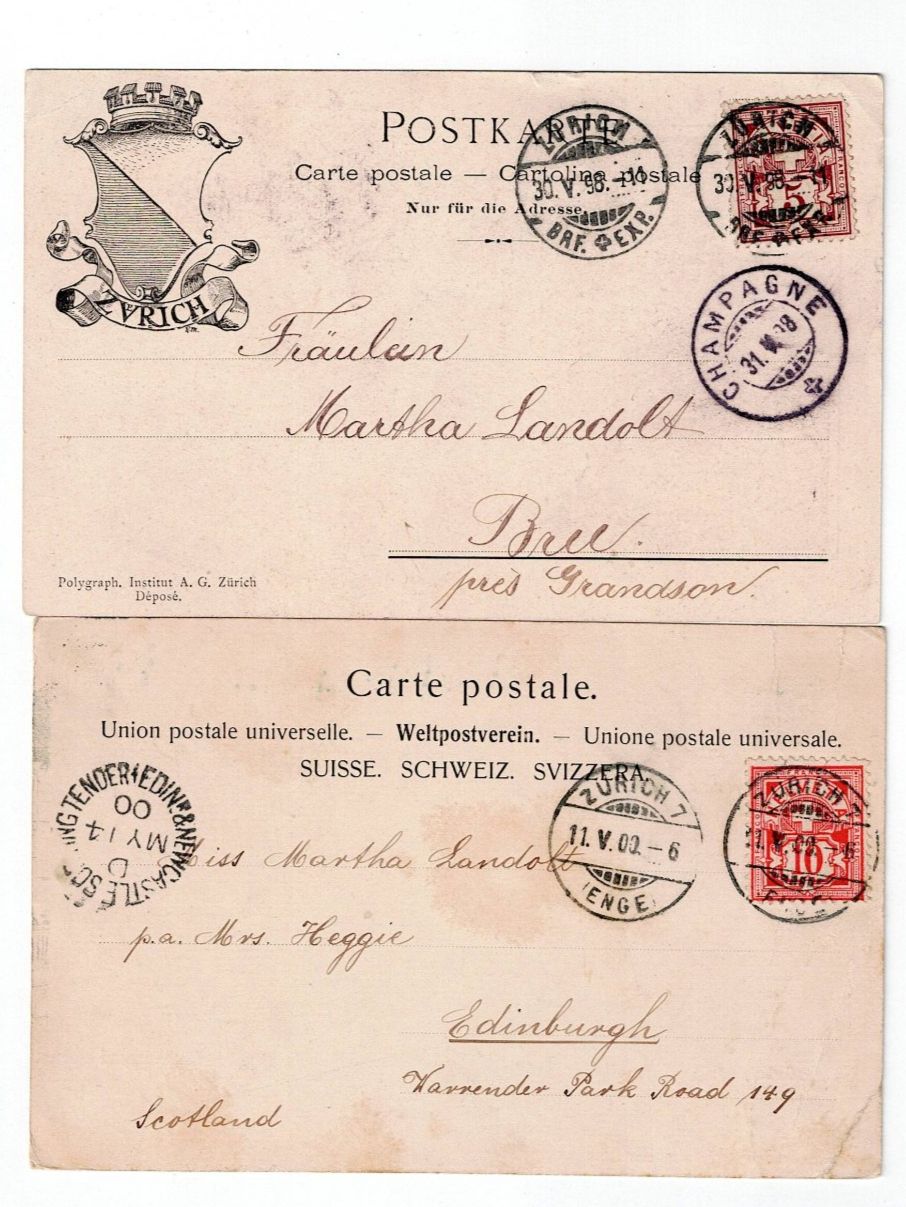 POSTKARTE
Carte postale — Cartolina postale
Nur für die Adresse.
ZÜRICH
30. V. 98. -11
BRF. EXP.
ZÜRICH 1
30. V. 98. -11
BRF. EXP.
5
FRANCO
ZVRICH
CHAMPAGNE
31. V. 98
Fräulein
Martha Landolt
près Grandson.
Polygraph. Institut A. G. Zürich
Déposé.
Carte postale.
Union postale universelle. — Weltpostverein. — Unione postale universale.
SUISSE. SCHWEIZ. SVIZZERA.
ZÜRICH 7
11. V. 00. – 6
(ENGE)
ZÜRICH 7
11. V. 00. – 6
10
EDINR & NEWCASTLE
00
MY 14
D
Miss Martha Landolt
p.a. Mrs. Heggie
Edinburgh
Warrender Park Road 149
Scotland